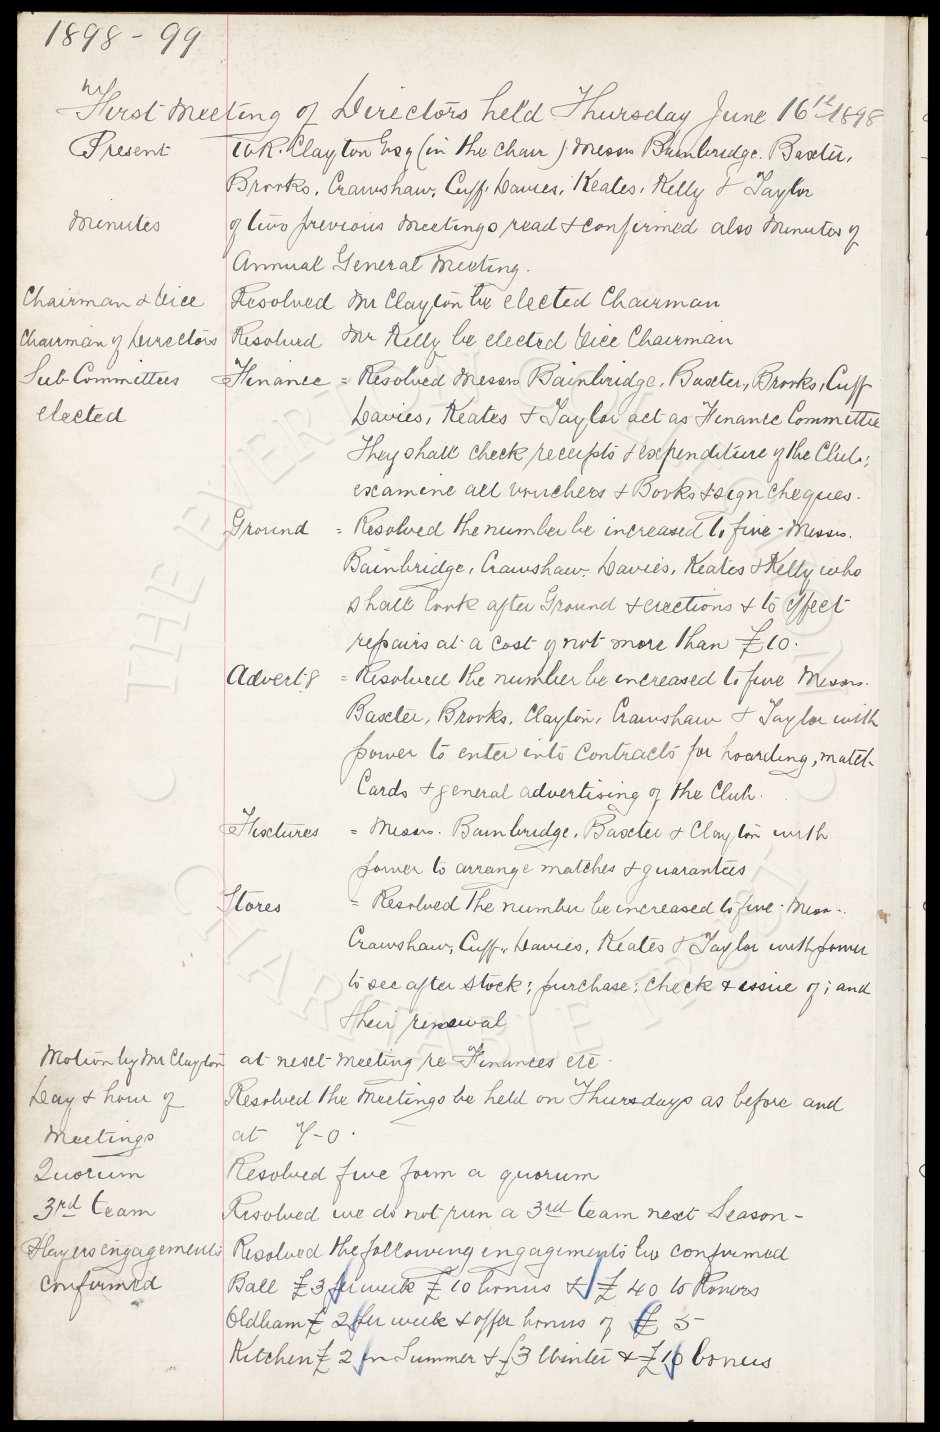 1898-99
First Meeting of Directors held Thursday June 16th 1898
Present W.R. Clayton Esq (in the Chair) Messrs Bainbridge. Baxter.
Brooks. Crawshaw. Cuff. Davies. Keates. Kelly & Taylor
Minutes of two previous Meetings read & confirmed also Minutes of
Annual General Meeting.
Chairman & Vice Resolved Mr Clayton be elected Chairman
Chairman of Directors Resolved Mr Kelly be elected Vice Chairman
Sub Committees Finance = Resolved Messrs Bainbridge. Baxter, Brooks, Cuff
elected Davies, Keates & Taylor act as Finance Committee
They shall check receipts & expenditure of the Club;
examine all vouchers & Books & sign cheques.
Ground = Resolved the number be increased to five - Messrs.
Bainbridge, Crawshaw. Davies, Keates & Kelly who
shall look after Ground & erections & to effect
repairs at a cost of not more than £10.
Advertg = Resolved the number be increased to five Messrs.
Baxter, Brooks. Clayton. Crawshaw & Taylor with
power to enter into contracts for hoarding, match
Cards & general advertising of the Club.
Fixtures = Messrs. Bainbridge. Baxter & Clayton with
power to arrange matches & guarantees
Stores = Resolved the number be increased to five - Messrs.
Crawshaw, Cuff. Davies, Keates & Taylor with power
to see after stock; purchase; check & issue of; and
their renewal
Motion by Mr Clayton at next meeting re Finances etc.
Day & hour of Resolved the Meetings be held on Thursdays as before and
Meetings at 7-0.
Quorum Resolved five form a quorum
3rd team Resolved we do not run a 3rd team next Season-
Players engagements Resolved the following engagements be confirmed
confirmed Ball £3 per week £10 bonus & £40 to Rovers
Oldham £2 per week & offer bonus of £5-
Kitchen £2 in Summer & £3 Winter & £10 bonus
© THE EVERTON COLLECTION CHARITABLE TRUST